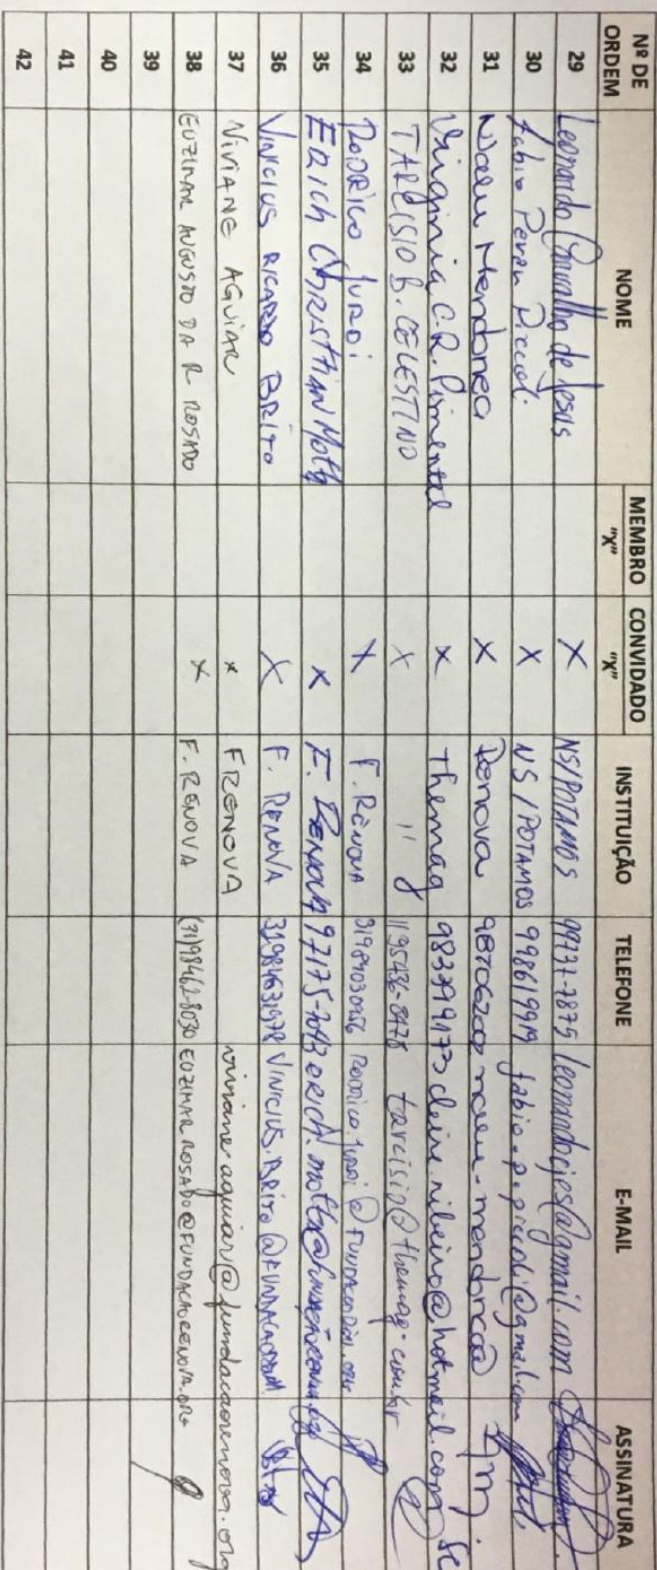 Nº DE ORDEM NOME MEMBRO "X" CONVIDADO "X" INSTITUIÇÃO TELEFONE E-MAIL ASSINATURA
29 Leonardo Carvalho de Jesus X NS/POTAMOS 99737-7875 leonardocjes@gmail.com
30 Fabio Perea Piccoli X NS/POTAMOS 998619919 fabio.p.piccoli@gmail.com
31 Mendonça X Renova
32 Virginia C.R. Pimentel X Themag 983399173 cleire.ribeiro@hotmail.com
33 TARCISIO B. CELESTINO X " 11 95436-8478 tarcisio@themag.com.br
34 RODRIGO JURDI X F. RENOVA
35 ERICH CHRISTHIAN Motta X F. RENOVA 97175-7043
36 VINICIUS RICARDO BRITO X F. RENOVA 31984631978
37 VIVIANE AGUIAR X FRENOVA viviane.aguiar@fundacaorenova.org
38 EUZIMAR AUGUSTO DA R ROSADO X F. RENOVA (31)98462-8030 EUZIMAR.ROSADO@FUNDACAORENOVA.ORG
39
40
41
42